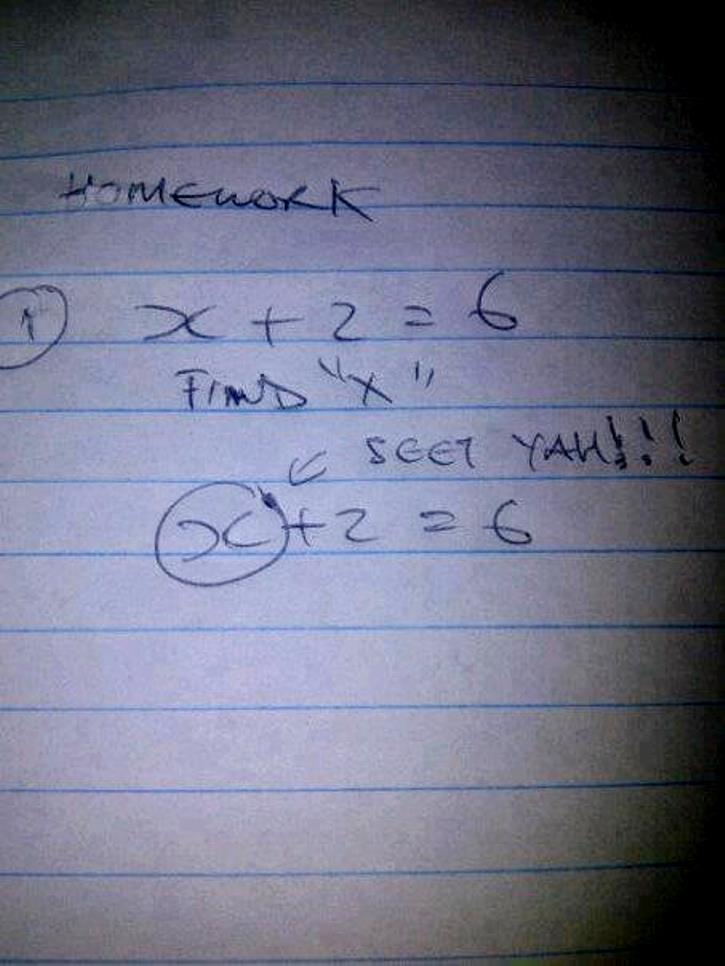 HOMEWORK
1 x + 2 = 6
FIND "X"
SEET YAH!!!
x + 2 = 6